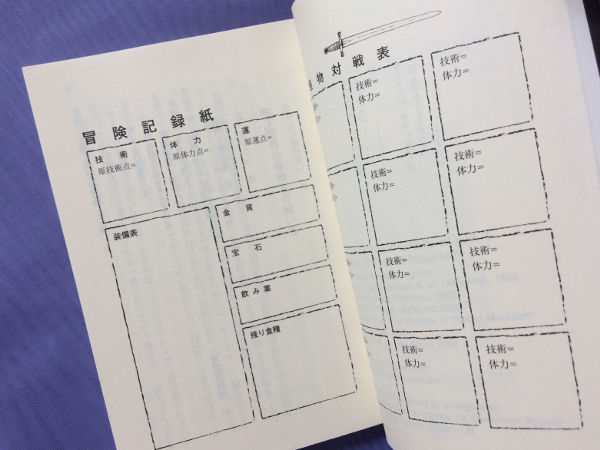 冒険記録紙
技術
原技術点=
体力
原体力点=
運
原運点=
装備表
金貨
宝石
飲み薬
残り食糧
物対戦表
技術=
体力=
技術=
体力=
技術=
体力=
技術=
体力=
技術=
体力=
技術=
体力=
技術=
体力=
技術=
体力=